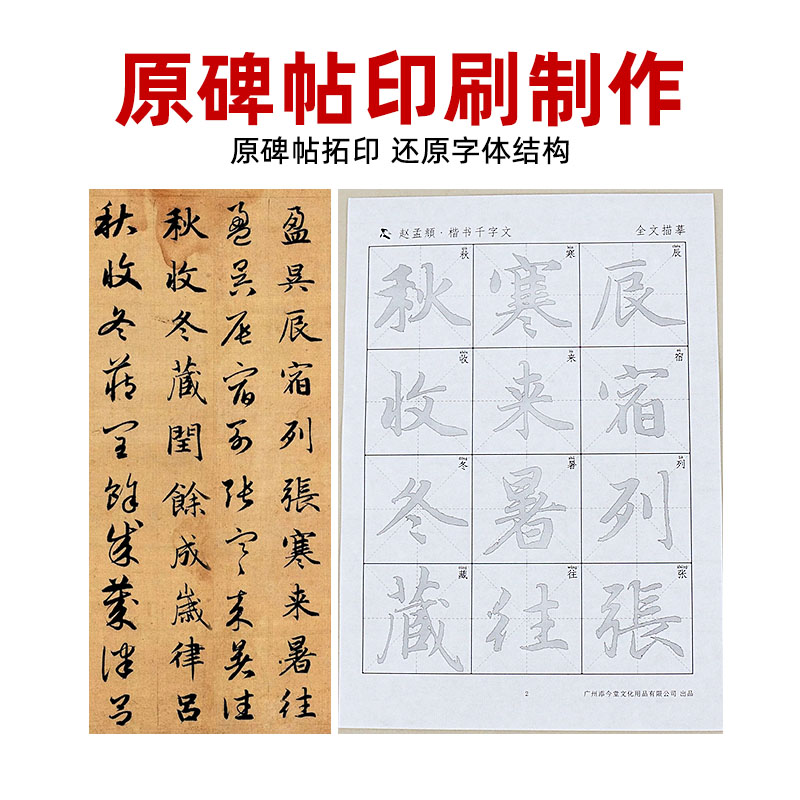 原碑帖印刷制作
原碑帖拓印 还原字体结构
盈昃辰宿列張寒来暑往
盈昃辰宿列張寒来暑往
秋收冬藏閏餘成歲律呂
秋收冬藏閏餘成歲律呂
赵孟頫·楷书千字文
全文描摹
辰宿列張
辰宿列张
寒来暑往
寒来暑往
秋收冬藏
秋收冬藏
2
广州 今堂文化用品有限公司 出品